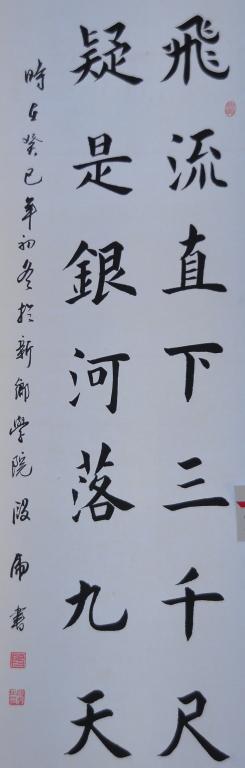 飛流直下三千尺
疑是銀河落九天
時在癸巳年初冬於新鄉學院段 書